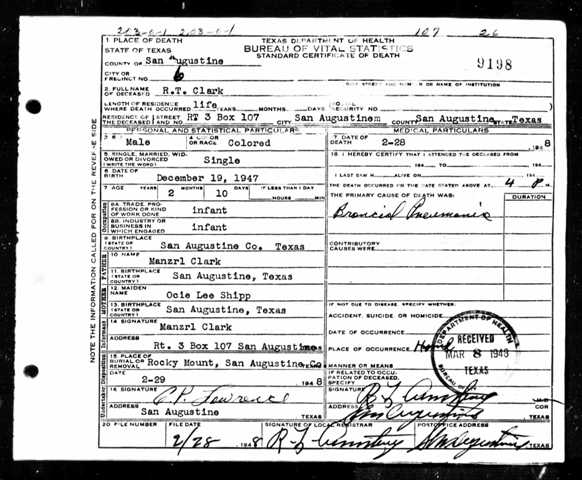 107 26
1 PLACE OF DEATH
STATE OF TEXAS
TEXAS DEPARTMENT OF HEALTH
BUREAU OF VITAL STATISTICS
STANDARD CERTIFICATE OF DEATH
9198
COUNTY OF San Augustine
CITY OR
PRECINCT NO. 6
2. FULL NAME
OF DECEASED R.T. Clark
LENGTH OF RESIDENCE
WHERE DEATH OCCURRED life YEARS MONTHS DAYS SECURITY NO.
RESIDENCE OF THE DECEASED STREET AND NO. RT 3 Box 107 CITY San Augustinem COUNTY San Augustine, STATE Texas
PERSONAL AND STATISTICAL PARTICULARS
Male
4 COLOR OR RACE Colored
5 SINGLE, MARRIED, WIDOWED OR DIVORCED (WRITE THE WORD) Single
6 DATE OF BIRTH December 19, 1947
7 AGE YEARS MONTHS DAYS IF LESS THAN 1 DAY
2 10 HOURS MIN
8A. TRADE, PROFESSION OR KIND OF WORK DONE infant
8B. INDUSTRY OR BUSINESS IN WHICH ENGAGED infant
9 BIRTHPLACE (STATE OR COUNTRY) San Augustine Co. Texas
FATHER
10 NAME Manzrl Clark
11 BIRTHPLACE (STATE OR COUNTRY) San Augustine, Texas
MOTHER
12. MAIDEN NAME Ocie Lee Shipp
13. BIRTHPLACE (STATE OR COUNTRY) San Augustine, Texas
14 SIGNATURE Manzrl Clark
ADDRESS Rt. 3 Box 107 San Augustine
15 PLACE OF BURIAL OR REMOVAL Rocky Mount, San Augustine, Co
DATE 2-29 1948
16 SIGNATURE E.P. Lawrence
ADDRESS San Augustine TEXAS
MEDICAL PARTICULARS
17 DATE OF DEATH 2-28 1948
18 I HEREBY CERTIFY THAT I ATTENDED THE DECEASED FROM
194 TO 194
I LAST SAW H ALIVE ON 194
THE DEATH OCCURRED ON THE DATE STATED ABOVE AT 4 P M.
THE PRIMARY CAUSE OF DEATH WAS: DURATION
Broncial Pneumonia
CONTRIBUTORY
CAUSES WERE:
IF NOT DUE TO DISEASE, SPECIFY WHETHER:
ACCIDENT, SUICIDE OR HOMICIDE
DATE OF OCCURRENCE
PLACE OF OCCURRENCE Home
MANNER OR MEANS
IF RELATED TO OCCUPATION OF DECEASED, SPECIFY
SIGNATURE
ADDRESS San Augustine
TEXAS
DEPARTMENT OF HEALTH
RECEIVED
MAR 8 1948
TEXAS
20 FILE NUMBER FILE DATE SIGNATURE OF LOCAL REGISTRAR POSTOFFICE ADDRESS
2/28 1948 San Augustine TEXAS
WRITE THE INFORMATION CALLED FOR ON THE REVERSE SIDE